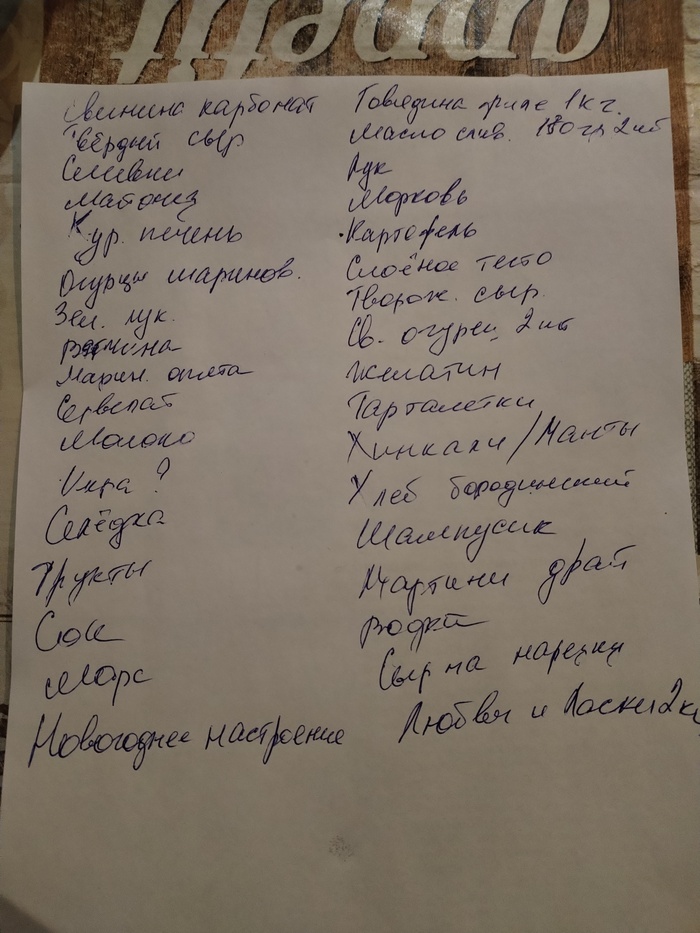 Свинина карбонат
Твёрдый сыр
Сливки
Майонез
Кур. печень
Огурцы маринов.
Зел. лук.
Ветчина
Марин. опята
Сервелат
Молоко
Икра ?
Селёдка
Фрукты
Сок
Морс
Новогоднее настроение
Говядина филе 1 кг.
Масло слив. 180 гр 2 шт
Лук
Морковь
Картофель
Слоёное тесто
Творож. сыр.
Св. огурец 2 шт
Желатин
Тарталетки
Хинкали / Манты
Хлеб бородинский
Шампусик
Мартини драй
Водка
Сыр на нарезку
Любви и Ласки 2 кг